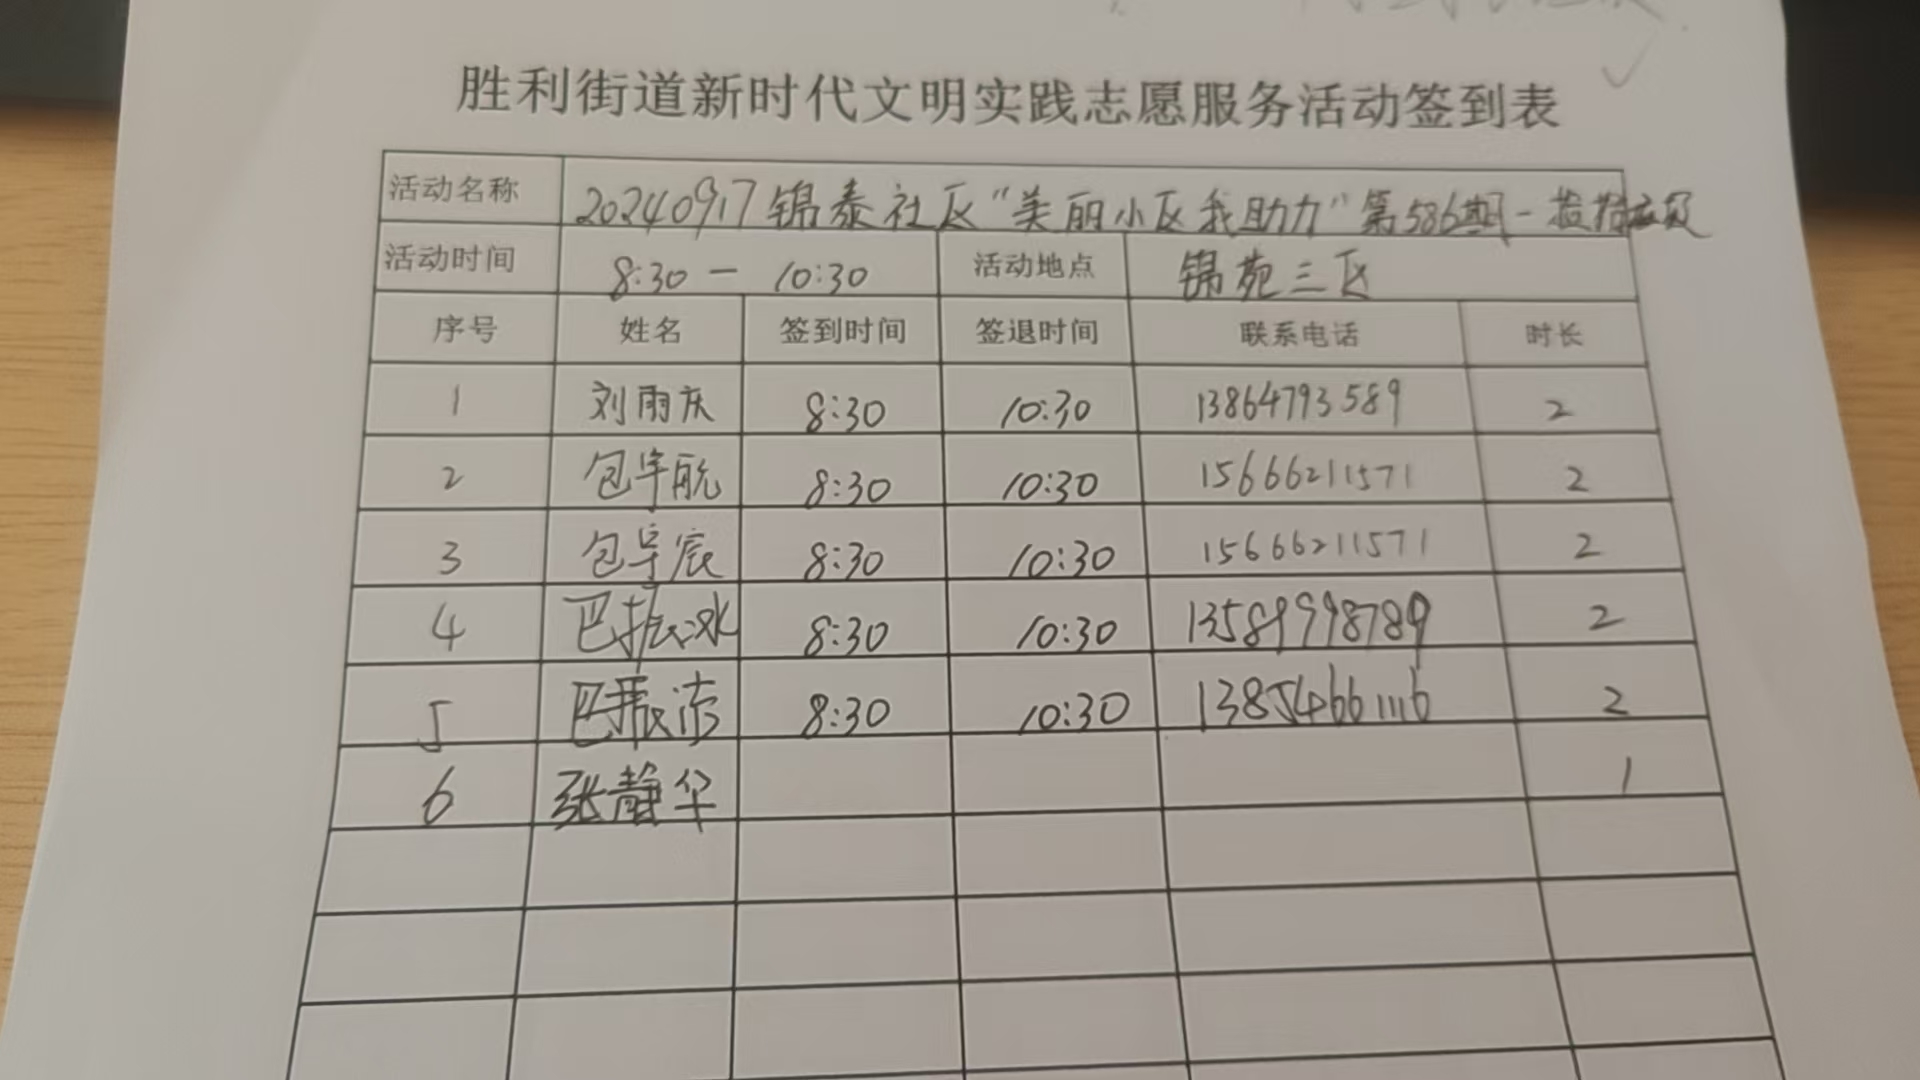 胜利街道新时代文明实践志愿服务活动签到表
活动名称 20240917锦泰社区“美丽小区我助力”第586期-捡拾垃圾
活动时间 8:30 - 10:30 活动地点 锦苑三区
序号 姓名 签到时间 签退时间 联系电话 时长
1 刘雨庆 8:30 10:30 13864793589 2
2 包宇航 8:30 10:30 15666211571 2
3 包宇宸 8:30 10:30 15666211571 2
4 巴振冰 8:30 10:30 13589998789 2
5 巴振 8:30 10:30 13854661116 2
6 张静华 1